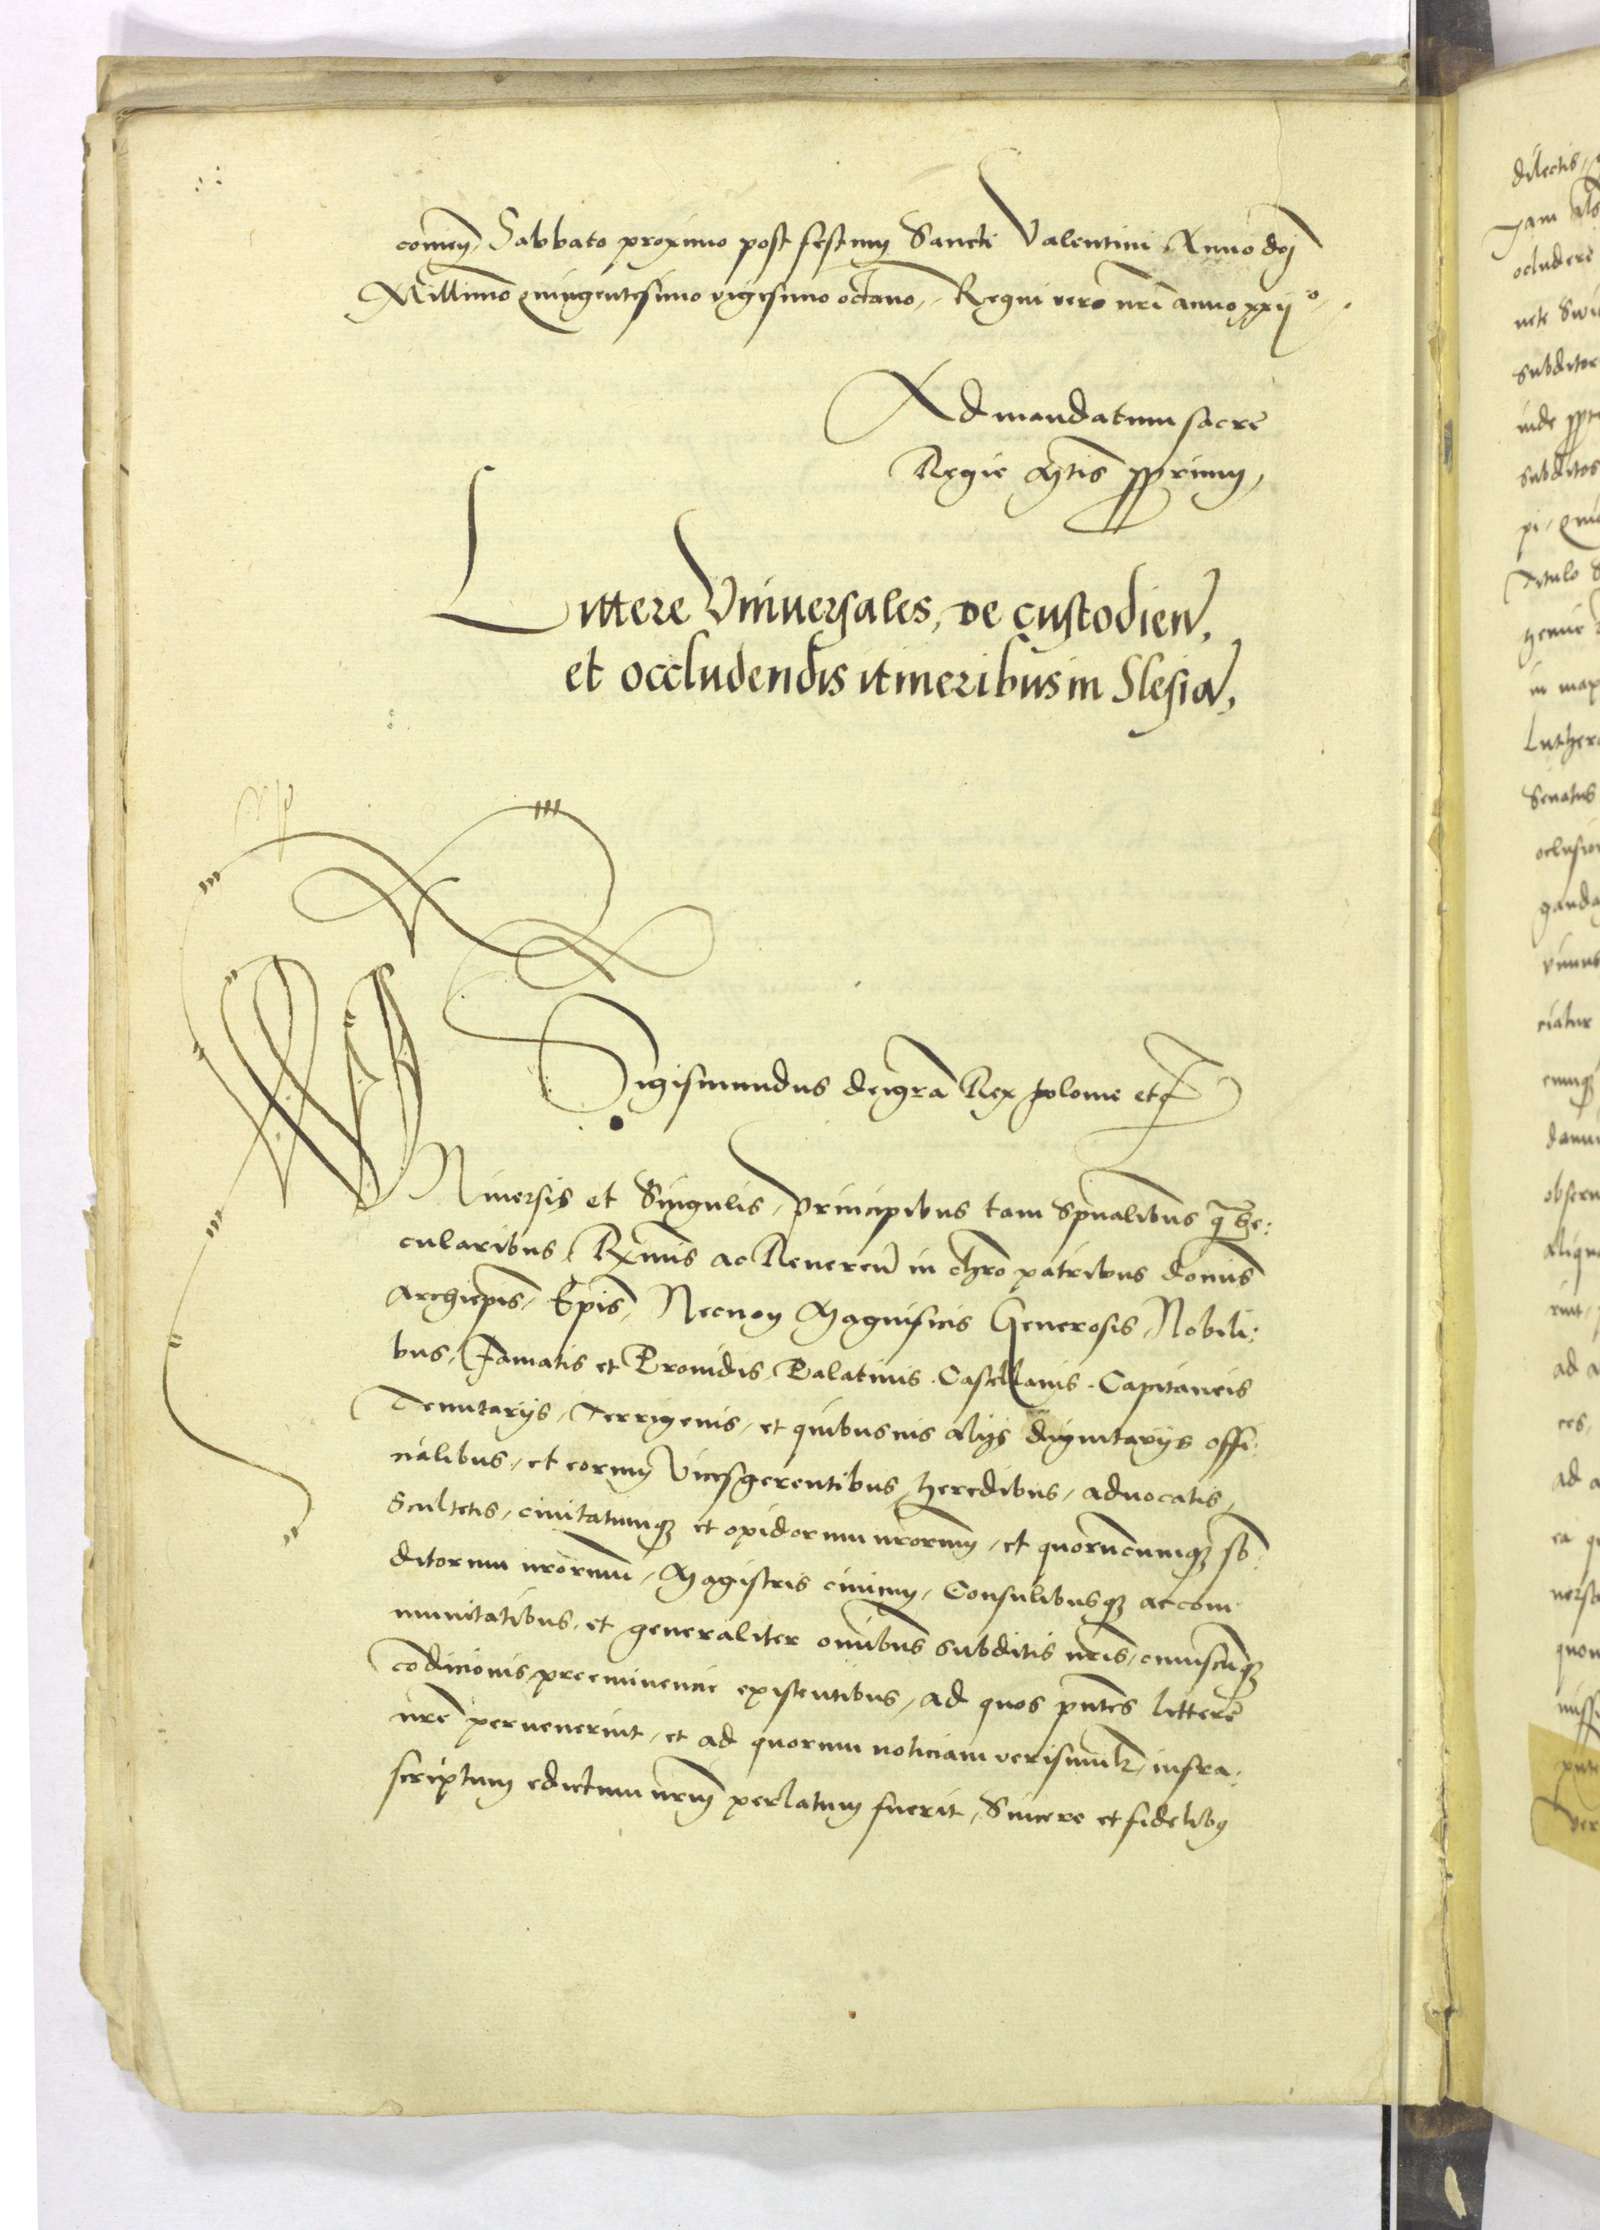 comen, Sabbato proximo post festum Sancti Valentini Anno dnj
Millimo quingentesimo vigesimo octavo, Regni vero nri anno xxij°
Ad mandatum sacre
Regie Mtis pprium,
Littere Vniuersales, de custodien,
et occludendis itineribus in Slesia,
Sigismundus dei gra Rex polonie etc
VNiuersis et Singulis, principibus tam Spualibus q̃ Se:
cularibus, Rximis ac Reueren in chro patribus domis
Archiepis, Epis, Necnon Magnificis Generosis, Nobili:
bus, Famatis et Prouidis, Palatinis. Castellanis. Capitaneis
Tenutarijs, Terrigenis, et quibusuis alijs dignitarijs offi:
cialibus, et eorum vicesgerentibus, heredibus, aduocatis,
Scultetis, ciuitatumq3 et opidorum nrorum, et quorucumq3 sb:
ditorum nrorum, Magistris ciuium, Consulibusq3 ac com
munitatibus, et generaliter omibus subditis nris, cuiuscuq3
codicionis preeminencie existentibus, ad quos pntes littere
nre peruenerint, et ad quorum noticiam verisimilr, infra:
scriptum edictum nrm perlatum fuerit, Sincere et fidelibus
dilectis,
subditos
Senatus